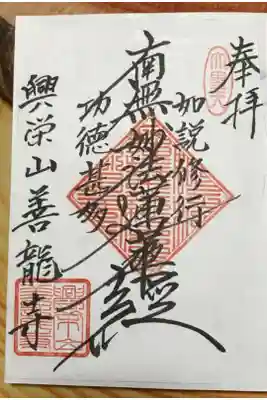 奉拝
如説修行
南無妙法蓮華經
功徳甚多
興栄山善龍寺